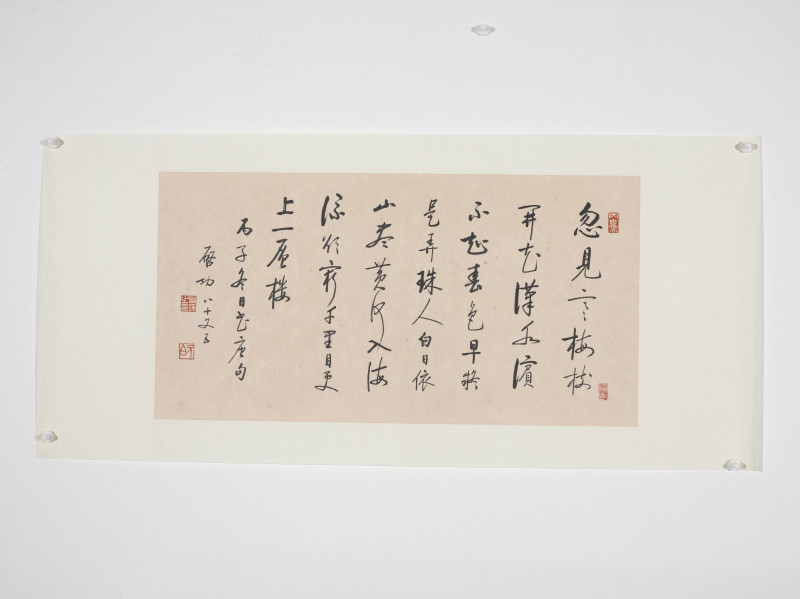 忽見寒梅樹
開花漢水濱
不知春色早疑
是弄珠人白日依
山盡黃河入海
流欲窮千里目更
上一層樓
丙子冬日書唐句
啟功 八十又五